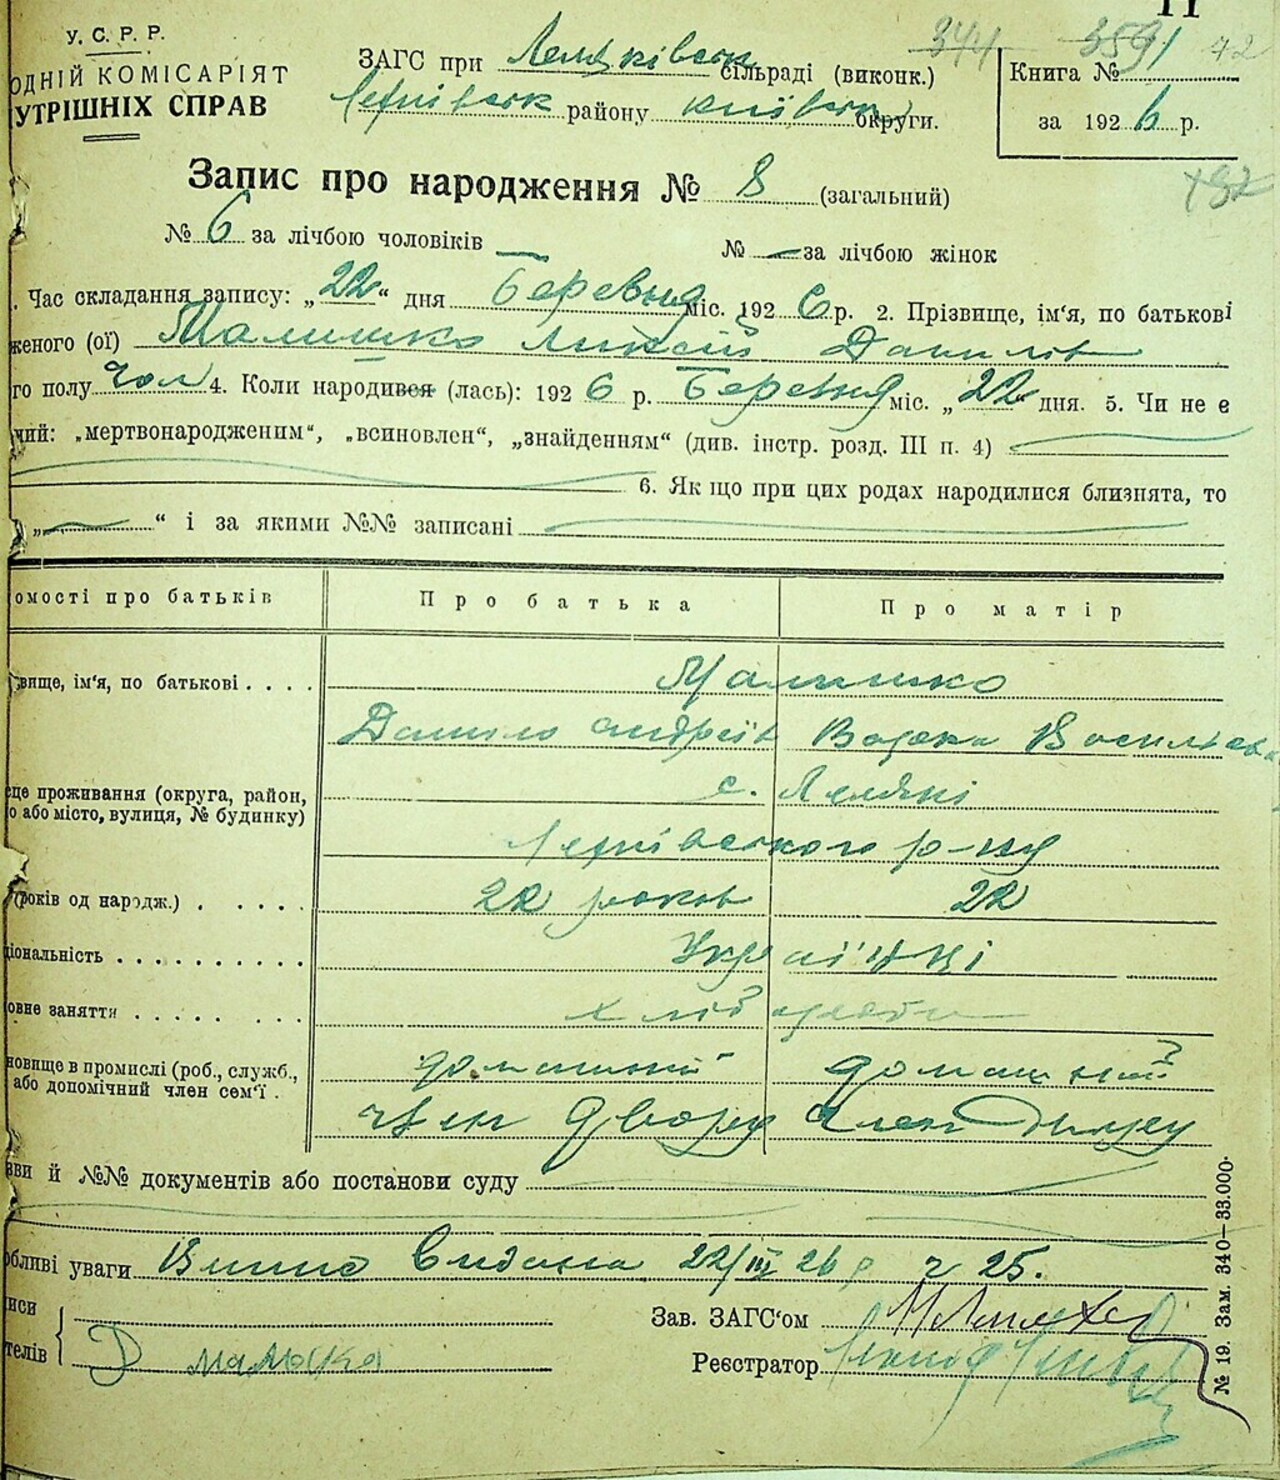 11
У. С. Р. Р.
ОДНІЙ КОМІСАРІЯТ
УТРІШНІХ СПРАВ
ЗАГС при Лемяківськ сільраді (виконк.)
району київськ округи.
344 3591 42
Книга №
за 1926 р.
Запис про народження № 8 (загальний)
№ 6 за лічбою чоловіків — № — за лічбою жінок
. Час складання запису: „22“ дня Березня міс. 1926 р. 2. Прізвище, ім'я, по батькові
женого (ої) Малишко Данилів
го полу чол 4. Коли народився (лась): 1926 р. Березня міс. „22“ дня. 5. Чи не є
чий: „мертвонародженим“, „всиновлен“, „знайденням“ (див. інстр. розд. III п. 4)
6. Як що при цих родах народилися близнята, то
„ “ і за якими №№ записані
омості про батьків Про батька Про матір
вище, ім'я, по батькові . . . . Малишко
Данило андріїв Василєва
це проживання (округа, район, с. Лемякі
о або місто, вулиця, № будинку)
р-ну
(років од народж.) . . . . . 22 роков 22
ціональність . . . . . . . . . . Українці
овне заняття . . . . . . . . хлібороби
новище в промислі (роб., служб., домашній домашній
або допомічний член сем'ї .
член двору член двору
ави й №№ документів або постанови суду
обливі уваги Видана 22/III 26 р ч 25.
иси
телів
Д малышка
Зав. ЗАГС'ом
Реєстратор
№ 19. Зам. 340—33.000.